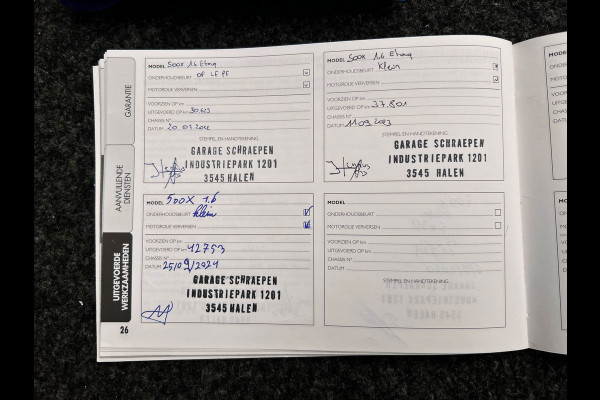 GARANTIE
AANVULLENDE
DIENSTEN
UITGEVOERDE
WERKZAAMHEDEN
26
MODEL 500X 1.6 Etorq
ONDERHOUDSBEURT OF LF PF
MOTOROLIE VERVERSEN
VOORZIEN OP km
UITGEVOERD OP km 30.613
CHASSIS N°
DATUM
STEMPEL EN HANDTEKENING
GARAGE SCHRAEPEN
INDUSTRIEPARK 1201
3545 HALEN
MODEL 500X 1.6 Etorq
ONDERHOUDSBEURT Klein
MOTOROLIE VERVERSEN
VOORZIEN OP km
UITGEVOERD OP km 37.801
CHASSIS N°
DATUM 11.09.2023
STEMPEL EN HANDTEKENING
GARAGE SCHRAEPEN
INDUSTRIEPARK 1201
3545 HALEN
MODEL 500X 1.6
ONDERHOUDSBEURT klein
MOTOROLIE VERVERSEN
VOORZIEN OP km
UITGEVOERD OP km 42753
CHASSIS N°
DATUM 25/09/2024
GARAGE SCHRAEPEN
INDUSTRIEPARK 1201
3545 HALEN
MODEL
ONDERHOUDSBEURT
MOTOROLIE VERVERSEN
VOORZIEN OP km
UITGEVOERD OP km
CHASSIS N°
DATUM
STEMPEL EN HANDTEKENING